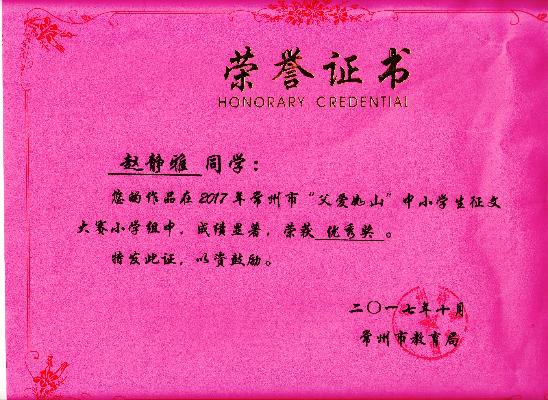 荣誉证书
HONORARY CREDENTIAL
赵静雅 同学：
您的作品在2017年常州市“父爱如山”中小学生征文
大赛小学组中，成绩显著，荣获 优秀奖 。
特发此证，以资鼓励。
二〇一七年十月
常州市教育局